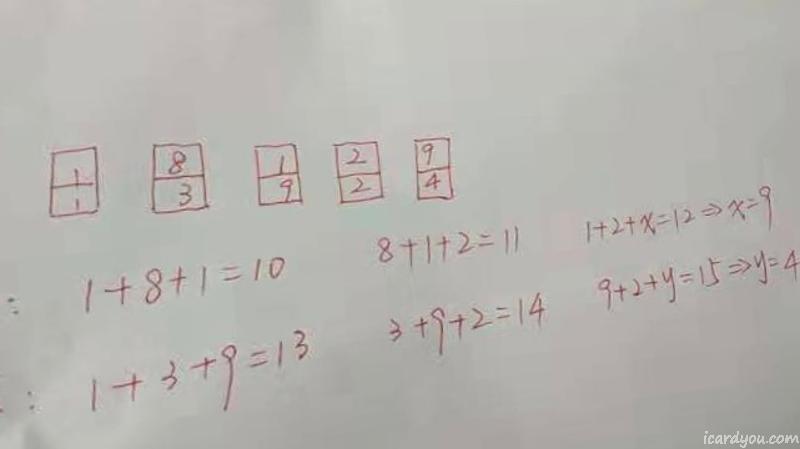 1 8 1 2 9
1 3 9 2 4
: 1+8+1=10 8+1+2=11 1+2+x=12⇒x=9
: 1+3+9=13 3+9+2=14 9+2+y=15⇒y=4
icardyou.com